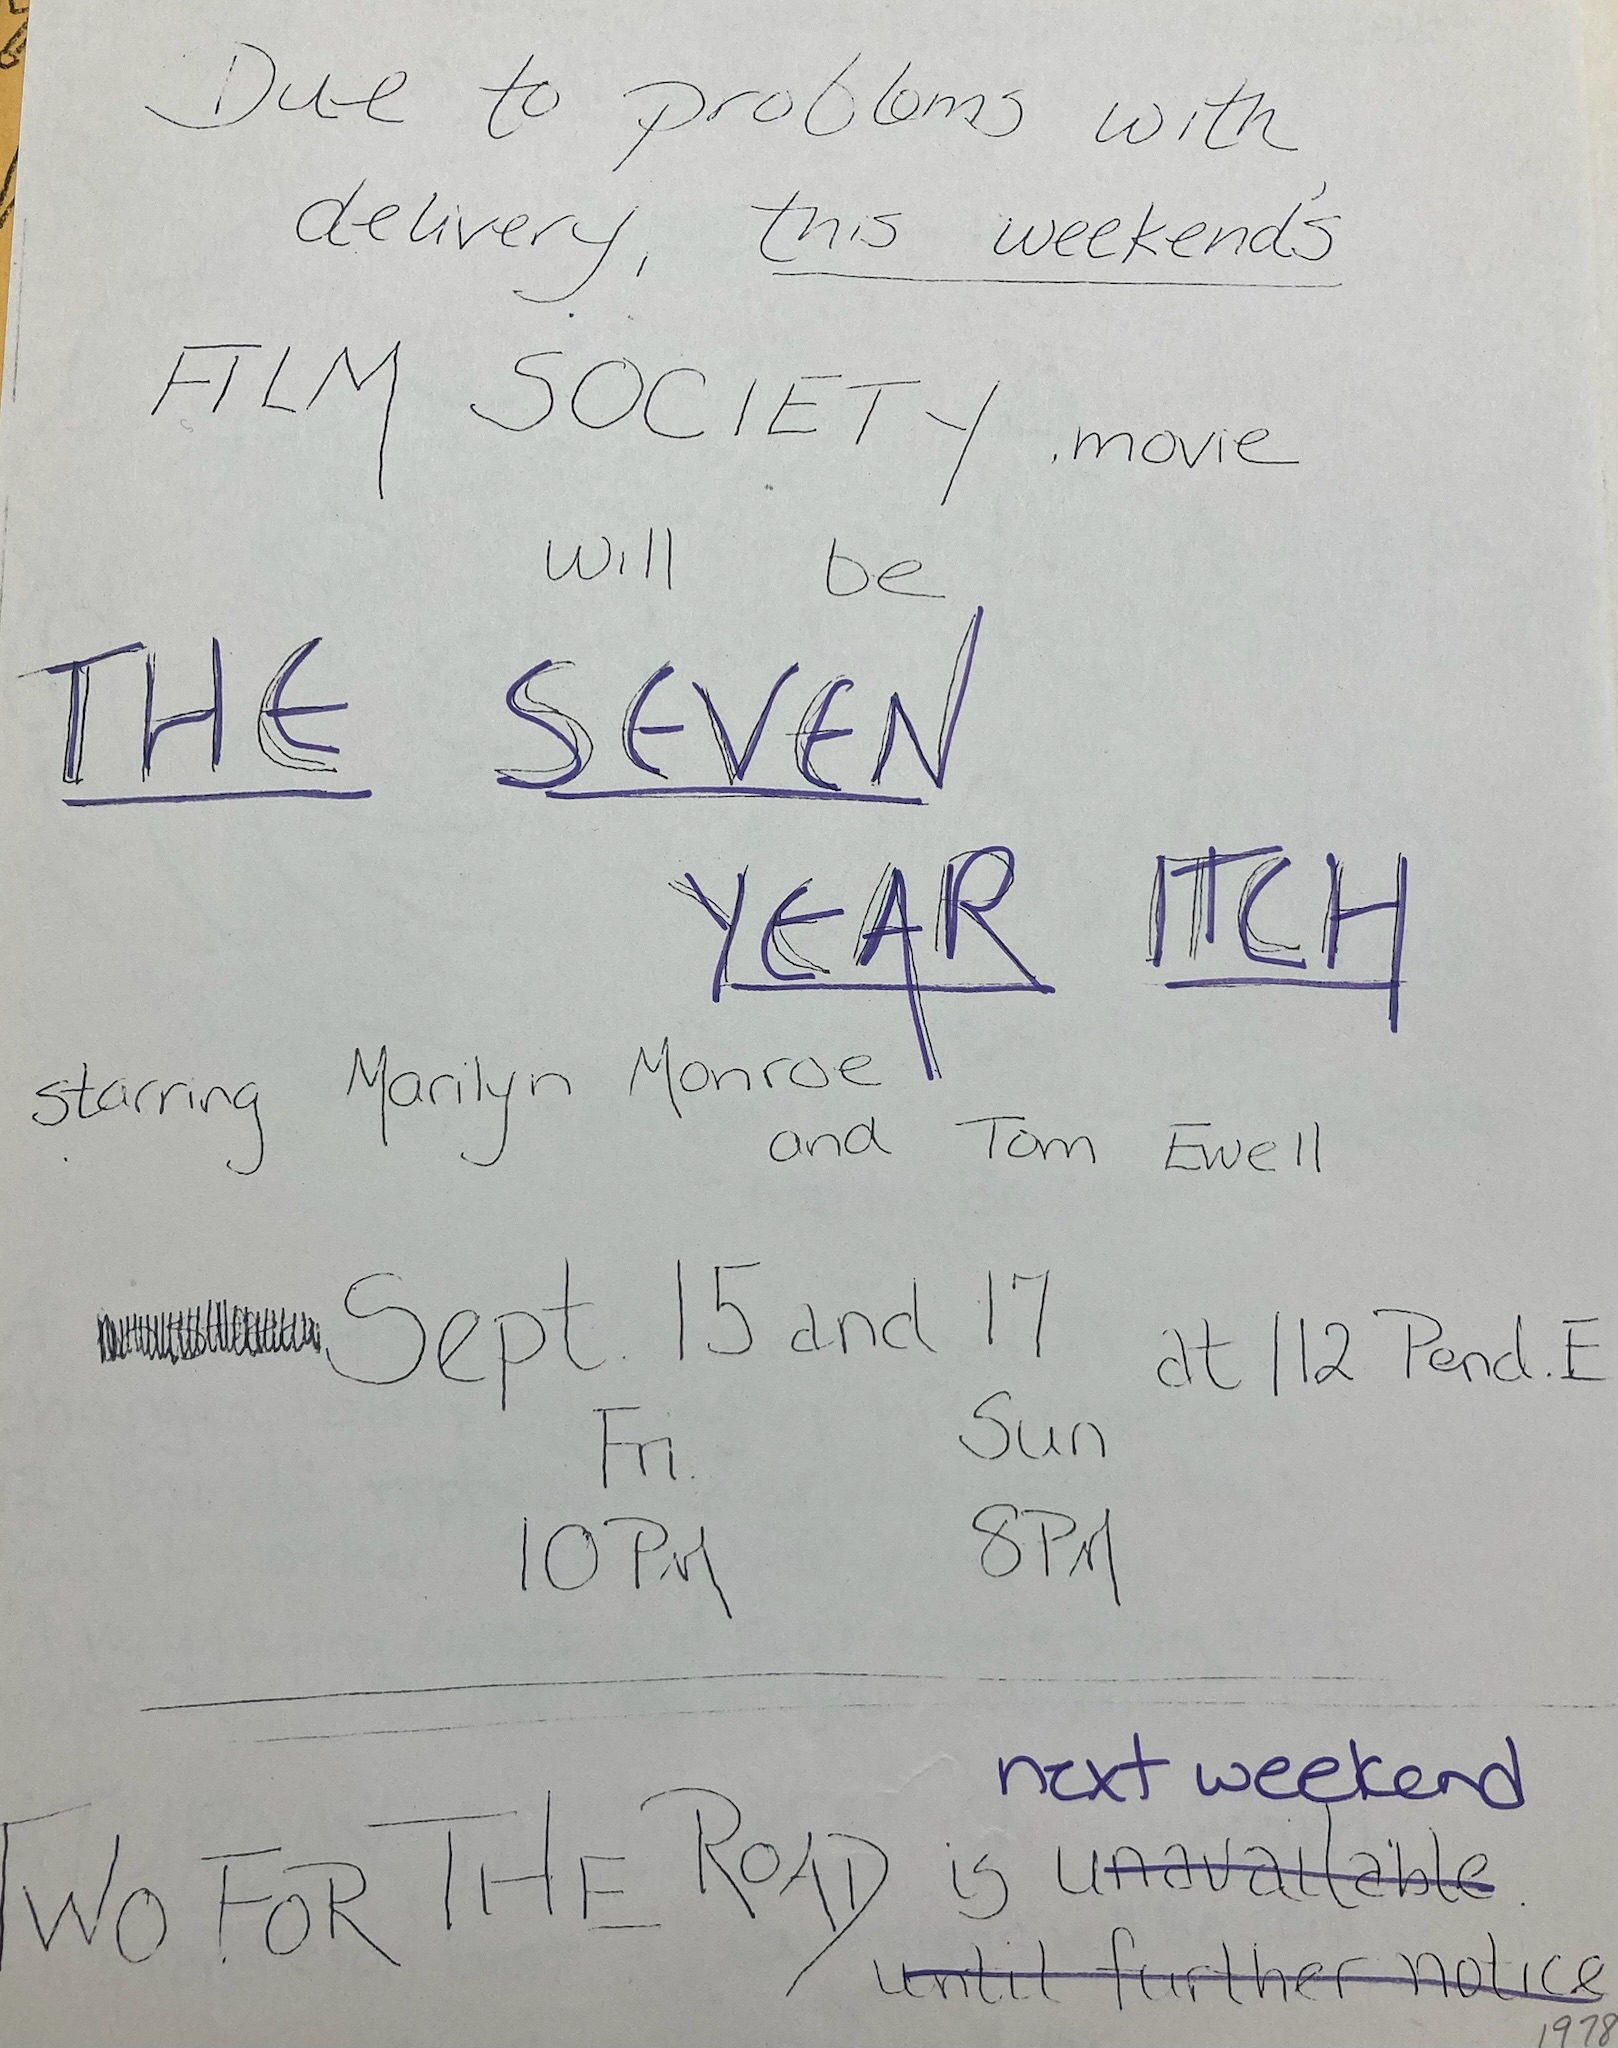 Due to problems with
delivery, this weekend's
FILM SOCIETY movie
will be
THE SEVEN
YEAR ITCH
starring Marilyn Monroe
and Tom Ewell
Sept. 15 and 17 at 112 Pend. E
Fri. Sun
10 PM 8 PM
next weekend
TWO FOR THE ROAD is unavailable.
until further notice
1978